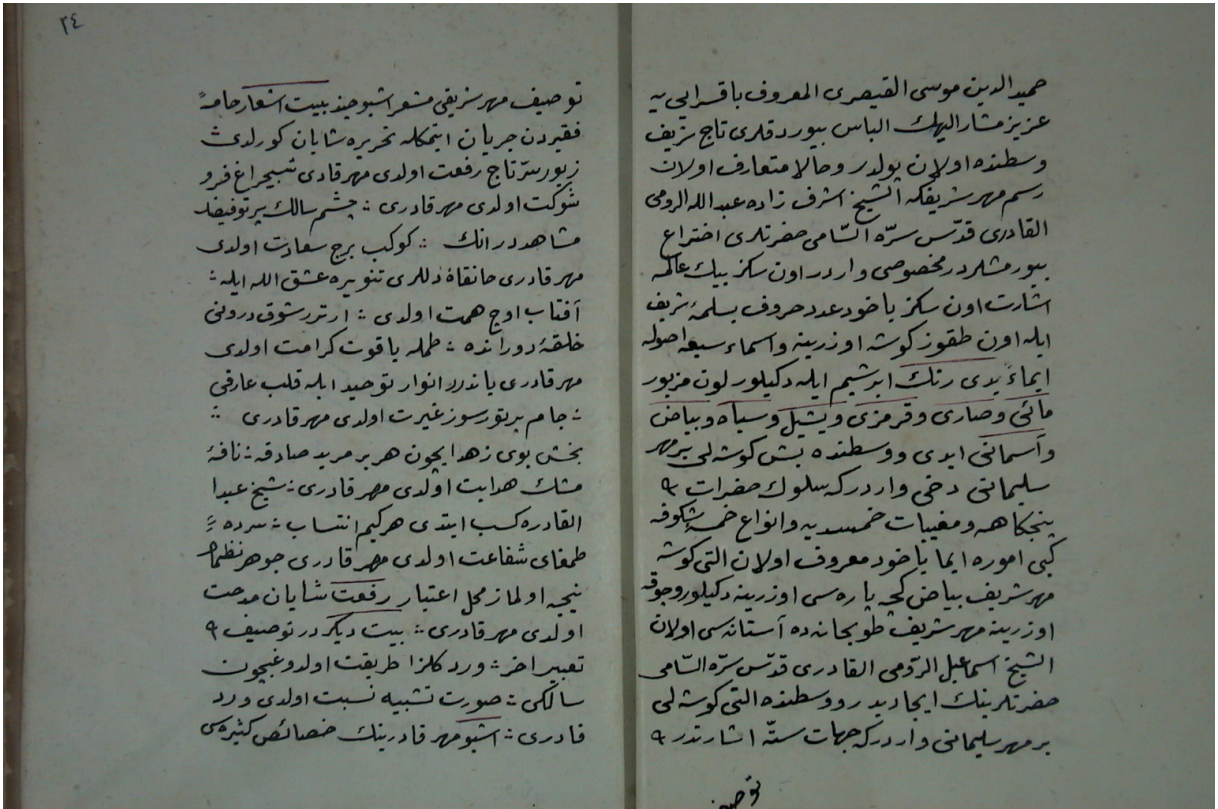 حميد الدين موسى القيصرى المعروف باقسرايى يه
عزيز مشار اليهك الباس بيوردقلرى تاج شريف
وسطنده اولان يولدر وحالا متعارف اولان
رسم مهر شريفكه الشيخ اشرف زاده عبد الله الرومى
القادرى قدّس سرّه السّامى حضرتلرى اختراع
بيورمشلردر مخصوصى واردر اون سكز بيك عالمه
اشارت اون سكز ياخود عدد حروف بسلمهٔ شريف
ايله اون طقوز كوشه اوزرينه واسماء سبعه اصوله
ايماءً يدى رنك ابرشيم ايله دكيلور لون مزبور
مائى وصارى وقرمزى ويشيل وسياه وبياض
وآسمانى ايدى ووسطنده بش كوشه لى بر مهر
سليمانى دخى واردركه سلوك حضرات
پنجكاهه ومغيبات خمسه يه وانواع خمسهٔ شكوفه
كبى اموره ايما ياخود معروف اولان التى كوشه
مهر شريف بياض كچه پاره سى اوزرينه دكيلور وجوقه
اوزرينه مهر شريف طوبخانه ده آستانه سى اولان
الشيخ اسماعيل الرّومى القادرى قدّس سرّه السّامى
حضرتلرينك ايجاديدر ووسطنده التى كوشه لى
بر مهر سليمانى واردركه جهات ستّه اشارتدر
توصيف
٢٤
توصيف مهر شريفى مشعر اشبو چند بيت اشعار خامهٔ
فقيردن جريان ايتمكله تحريره شايان كورلدى
زيور سرّ تاج رفعت اولدى مهر قادرى شبچراغ فرو
شوكت اولدى مهر قادرى ؞ چشم سالك پرتو فيضله
مشاهددر انك ؞ كوكب برج سعادت اولدى
مهر قادرى خانقاهٔ دللرى تنويره عشق الله ايله ؞
آفتاب اوج همت اولدى ؞ ارترر شوق درونى
حلقهٔ دورانده ؞ طمله ياقوت كرامت اولدى
مهر قادرى ياندرر انوار توحيد ايله قلب عارفى
؞ جام پرتورسوز غيرت اولدى مهر قادرى ؞
بخش بوى زهد ايچون هر بر مريد صادقه ؞ نافهٔ
مشك هدايت اولدى مهر قادرى ؞ شيخ عبدا
القادره كسب ايتدى هركيم انتساب ؞ سرده
طمغاى شفاعت اولدى مهر قادرى جوهر نظمم
نيجه اولماز محل اعتبار رفعت شايان مدحت
اولدى مهر قادرى ؞ بيت ديكر در توصيف
تعبير اخر ؞ ورد كلزار طريقت اولدوغيچون
سالكى ؞ صورت تشبيه نسبت اولدى ورد
قادرى ؞ اشبو مهر قادرينك خصائص كثيره سى